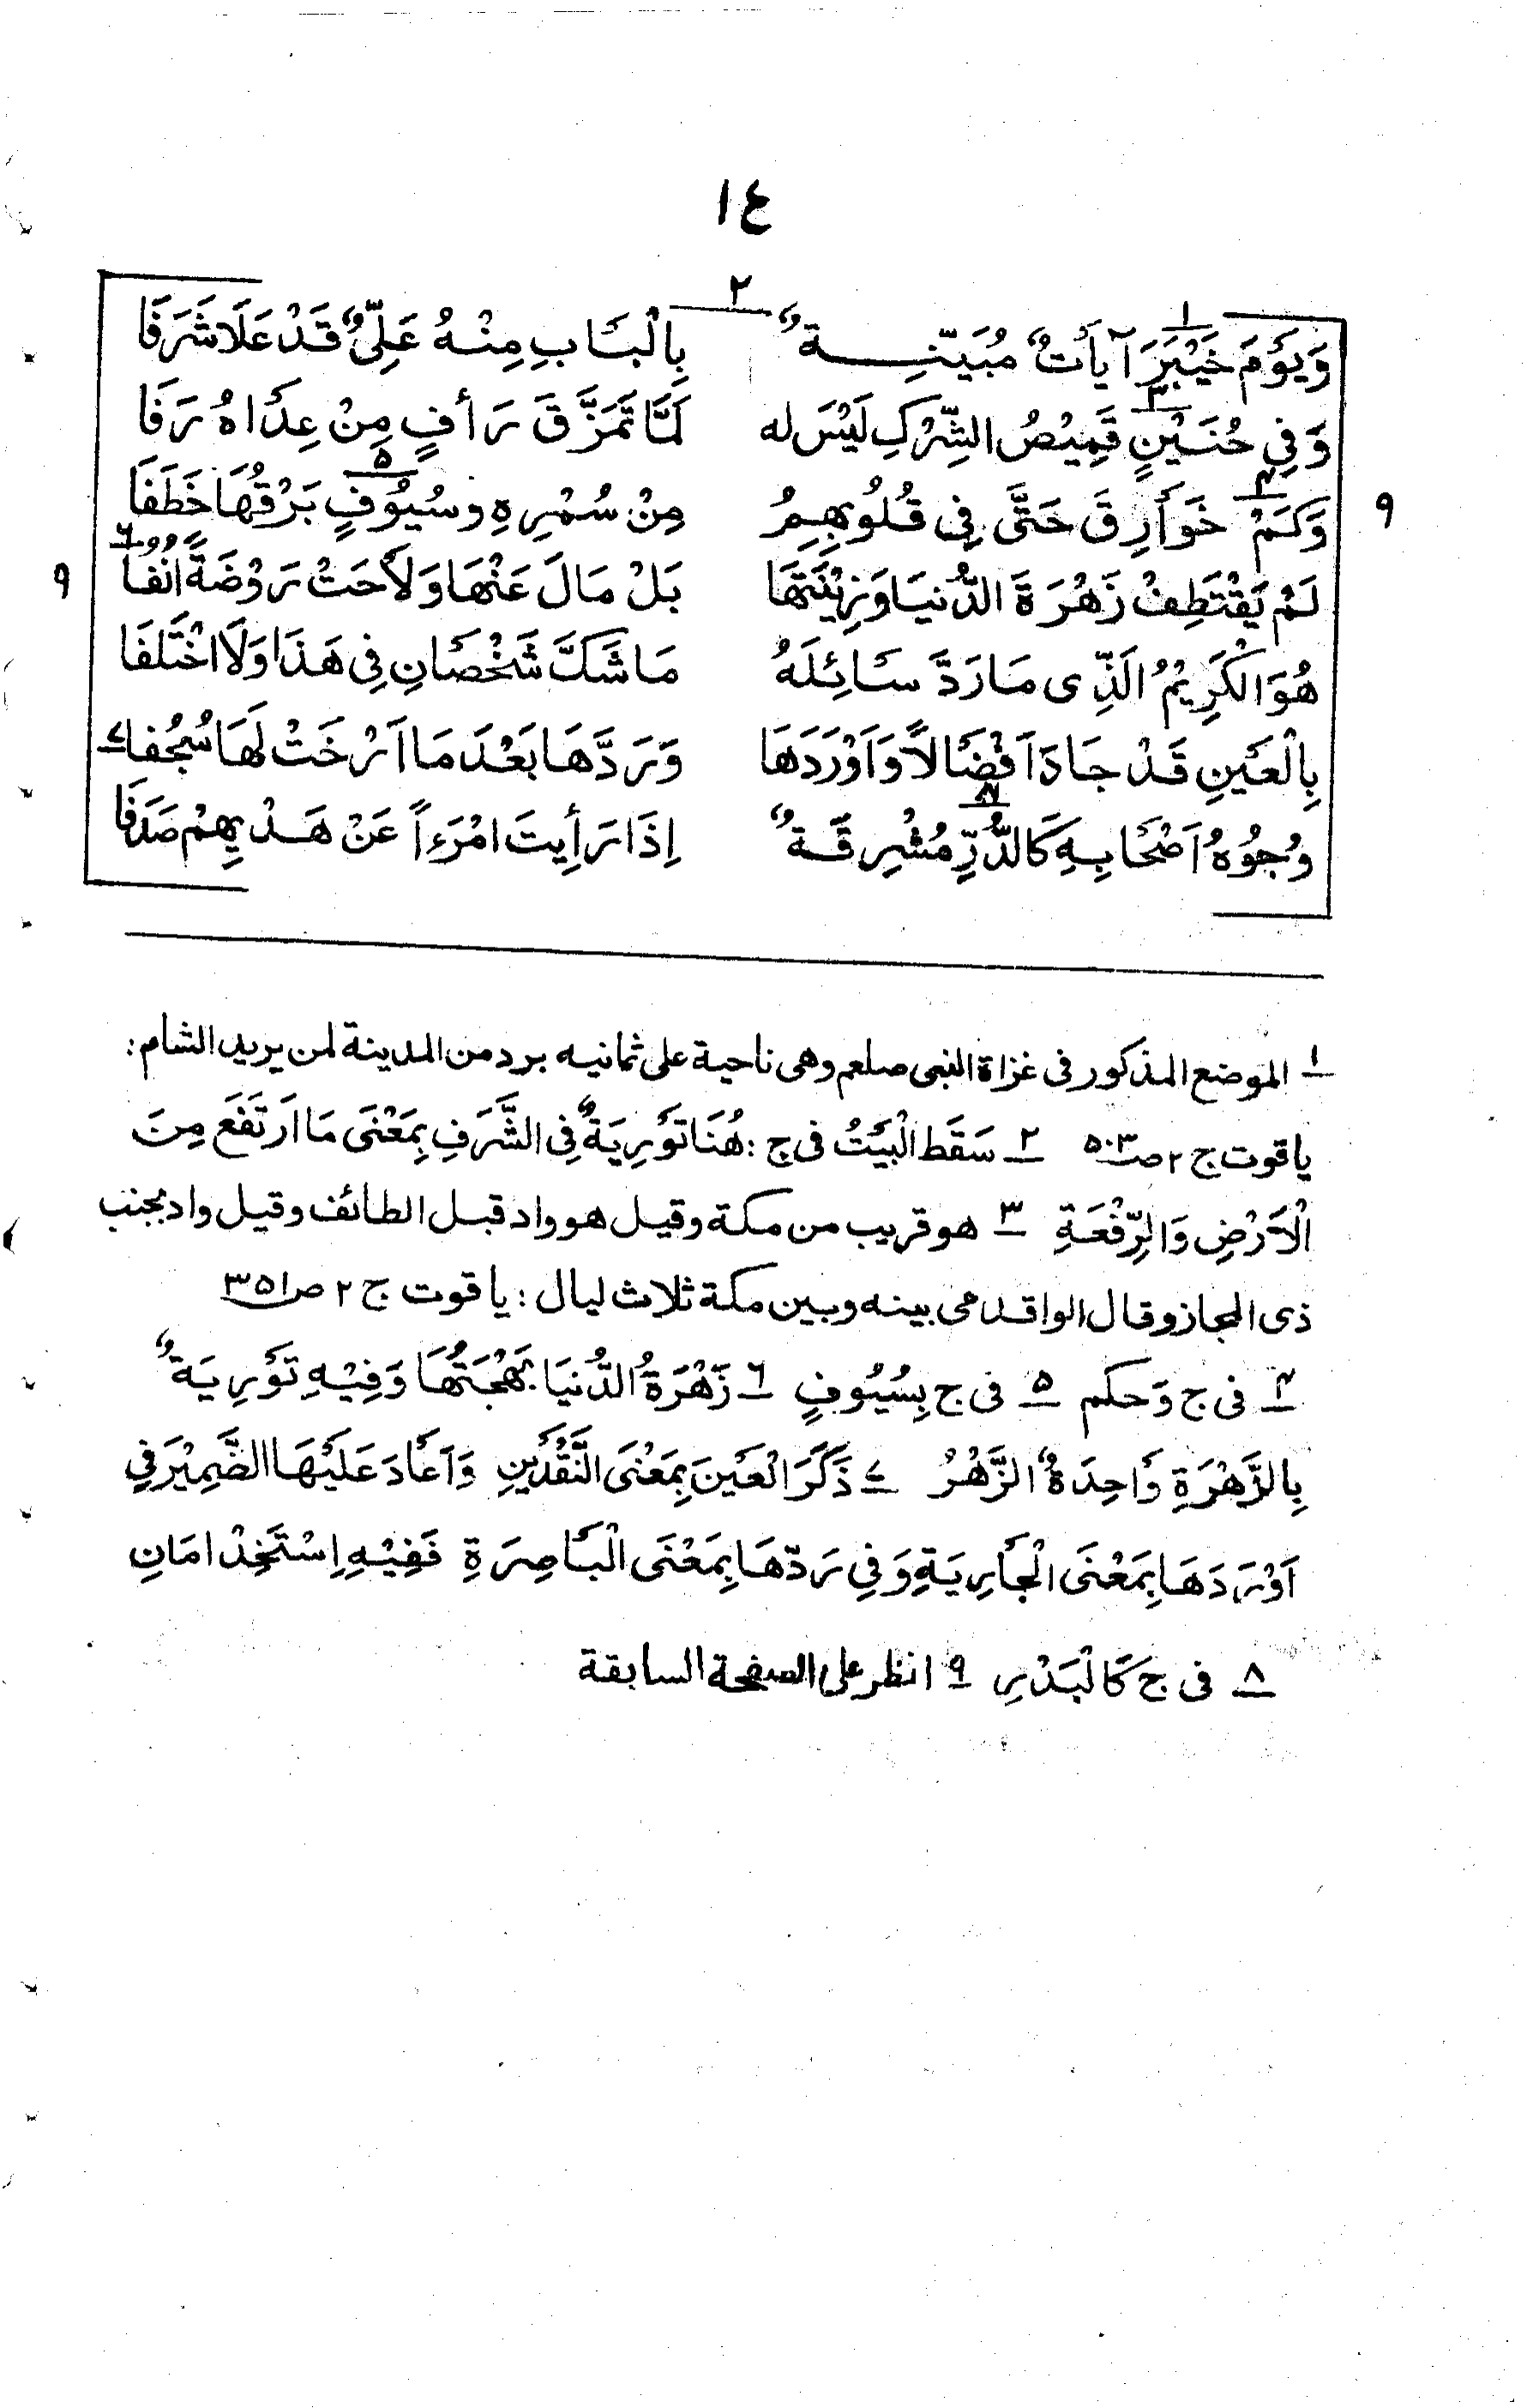 ١٤
وَيَوْمَ خَيْبَرَ١ آيَاتٌ مُبَيِّنَةٌ ٢ بِالْبَابِ مِنْهُ عَلِيٌّ قَدْ عَلَا شَرَفَا
وَفِي حُنَيْنٍ٣ قَمِيْصُ الشِّرْكِ لَيْسَ له لَمَّا تَمَزَّقَ رَأفٍ مِنْ عِدَاهُ رَفَا
٩ وَكَمْ٤ خَوَارِقَ حَتَّى فِى قُلُوبِهِمُ مِنْ سُمْرِهِ وسُيُوْفٍ٥ بَرْقُهَا خَطَفَا
لَمْ يَقْتَطِفْ زَهْرَةَ الدُّنيَا وَزِيْنَتَهَا بَلْ مَالَ عَنْهَا وَلَاحَتْ رَوْضَةً اُنُفًا٦ ٩
هُوَ الْكَرِيْمُ الَذِّى مَارَدَّ سَائِلَهُ مَا شَكَّ شَخْصَانِ فِى هَذَا وَلَا اخْتَلَفَا
بِالْعَيْنِ قَدْ جَادَ اَفْضَالاً وَاَوْرَدَهَا وَرَدَّهَا بَعْدَ مَا اَرْخَتْ لَهَا سُجُفا٧
وُجُوْهُ اَصْحَابِهِ كَالدُّرِّ٨ مُشْرِقَةٌ اِذَا رَأيتَ امْرَءاً عَنْ هَدْيِهِمْ صَدَفَا
١ الموضع المذكور فى غزاة النبى صلعم وهى ناحية على ثمانيه برد من المدينة لمن يريد الشام:
ياقوت ج ٢ ص ٥٠٣ ٢ سَقَطَ الْبَيْتُ فى ج: هُنَا تَوْرِيَةٌ فِى الشَّرَفِ بِمَعْنَى مَا ارْتَفَعَ مِنَ
الْاَرْضِ وَالرِّفْعَةِ ٣ هو قريب من مكة وقيل هو واد قبل الطائف وقيل واد بجنب
ذى المجاز وقال الواقدى بينه وبين مكة ثلاث ليال: ياقوت ج ٢ ص ٣٥١
٤ فى ج وَحكم ٥ فى ج بِسُيُوفٍ ٦ زَهْرَةُ الدُّنيَا بَهْجَتُهَا وَفِيْهِ تَوْرِيَةٌ
بِالزَّهْرَةِ وَاحِدَةُ الزَّهْرُ ٧ ذَكَرَ الْعَيْنَ بِمَعْنَى النَّقْدَيْنِ وَاَعَادَ عَلَيْهَا الضَّمِيْرَ فِي
اَوْرَدَهَا بِمَعْنَى الْجَارِيَةِ وَفِي رَدّهَا بِمَعْنَى الْبَاصِرَةِ فَفِيْهِ اِسْتَخِدْامَانِ
٨ فى ج كَالْبَدْرِ ٩ انظر على الصفحة السابقة